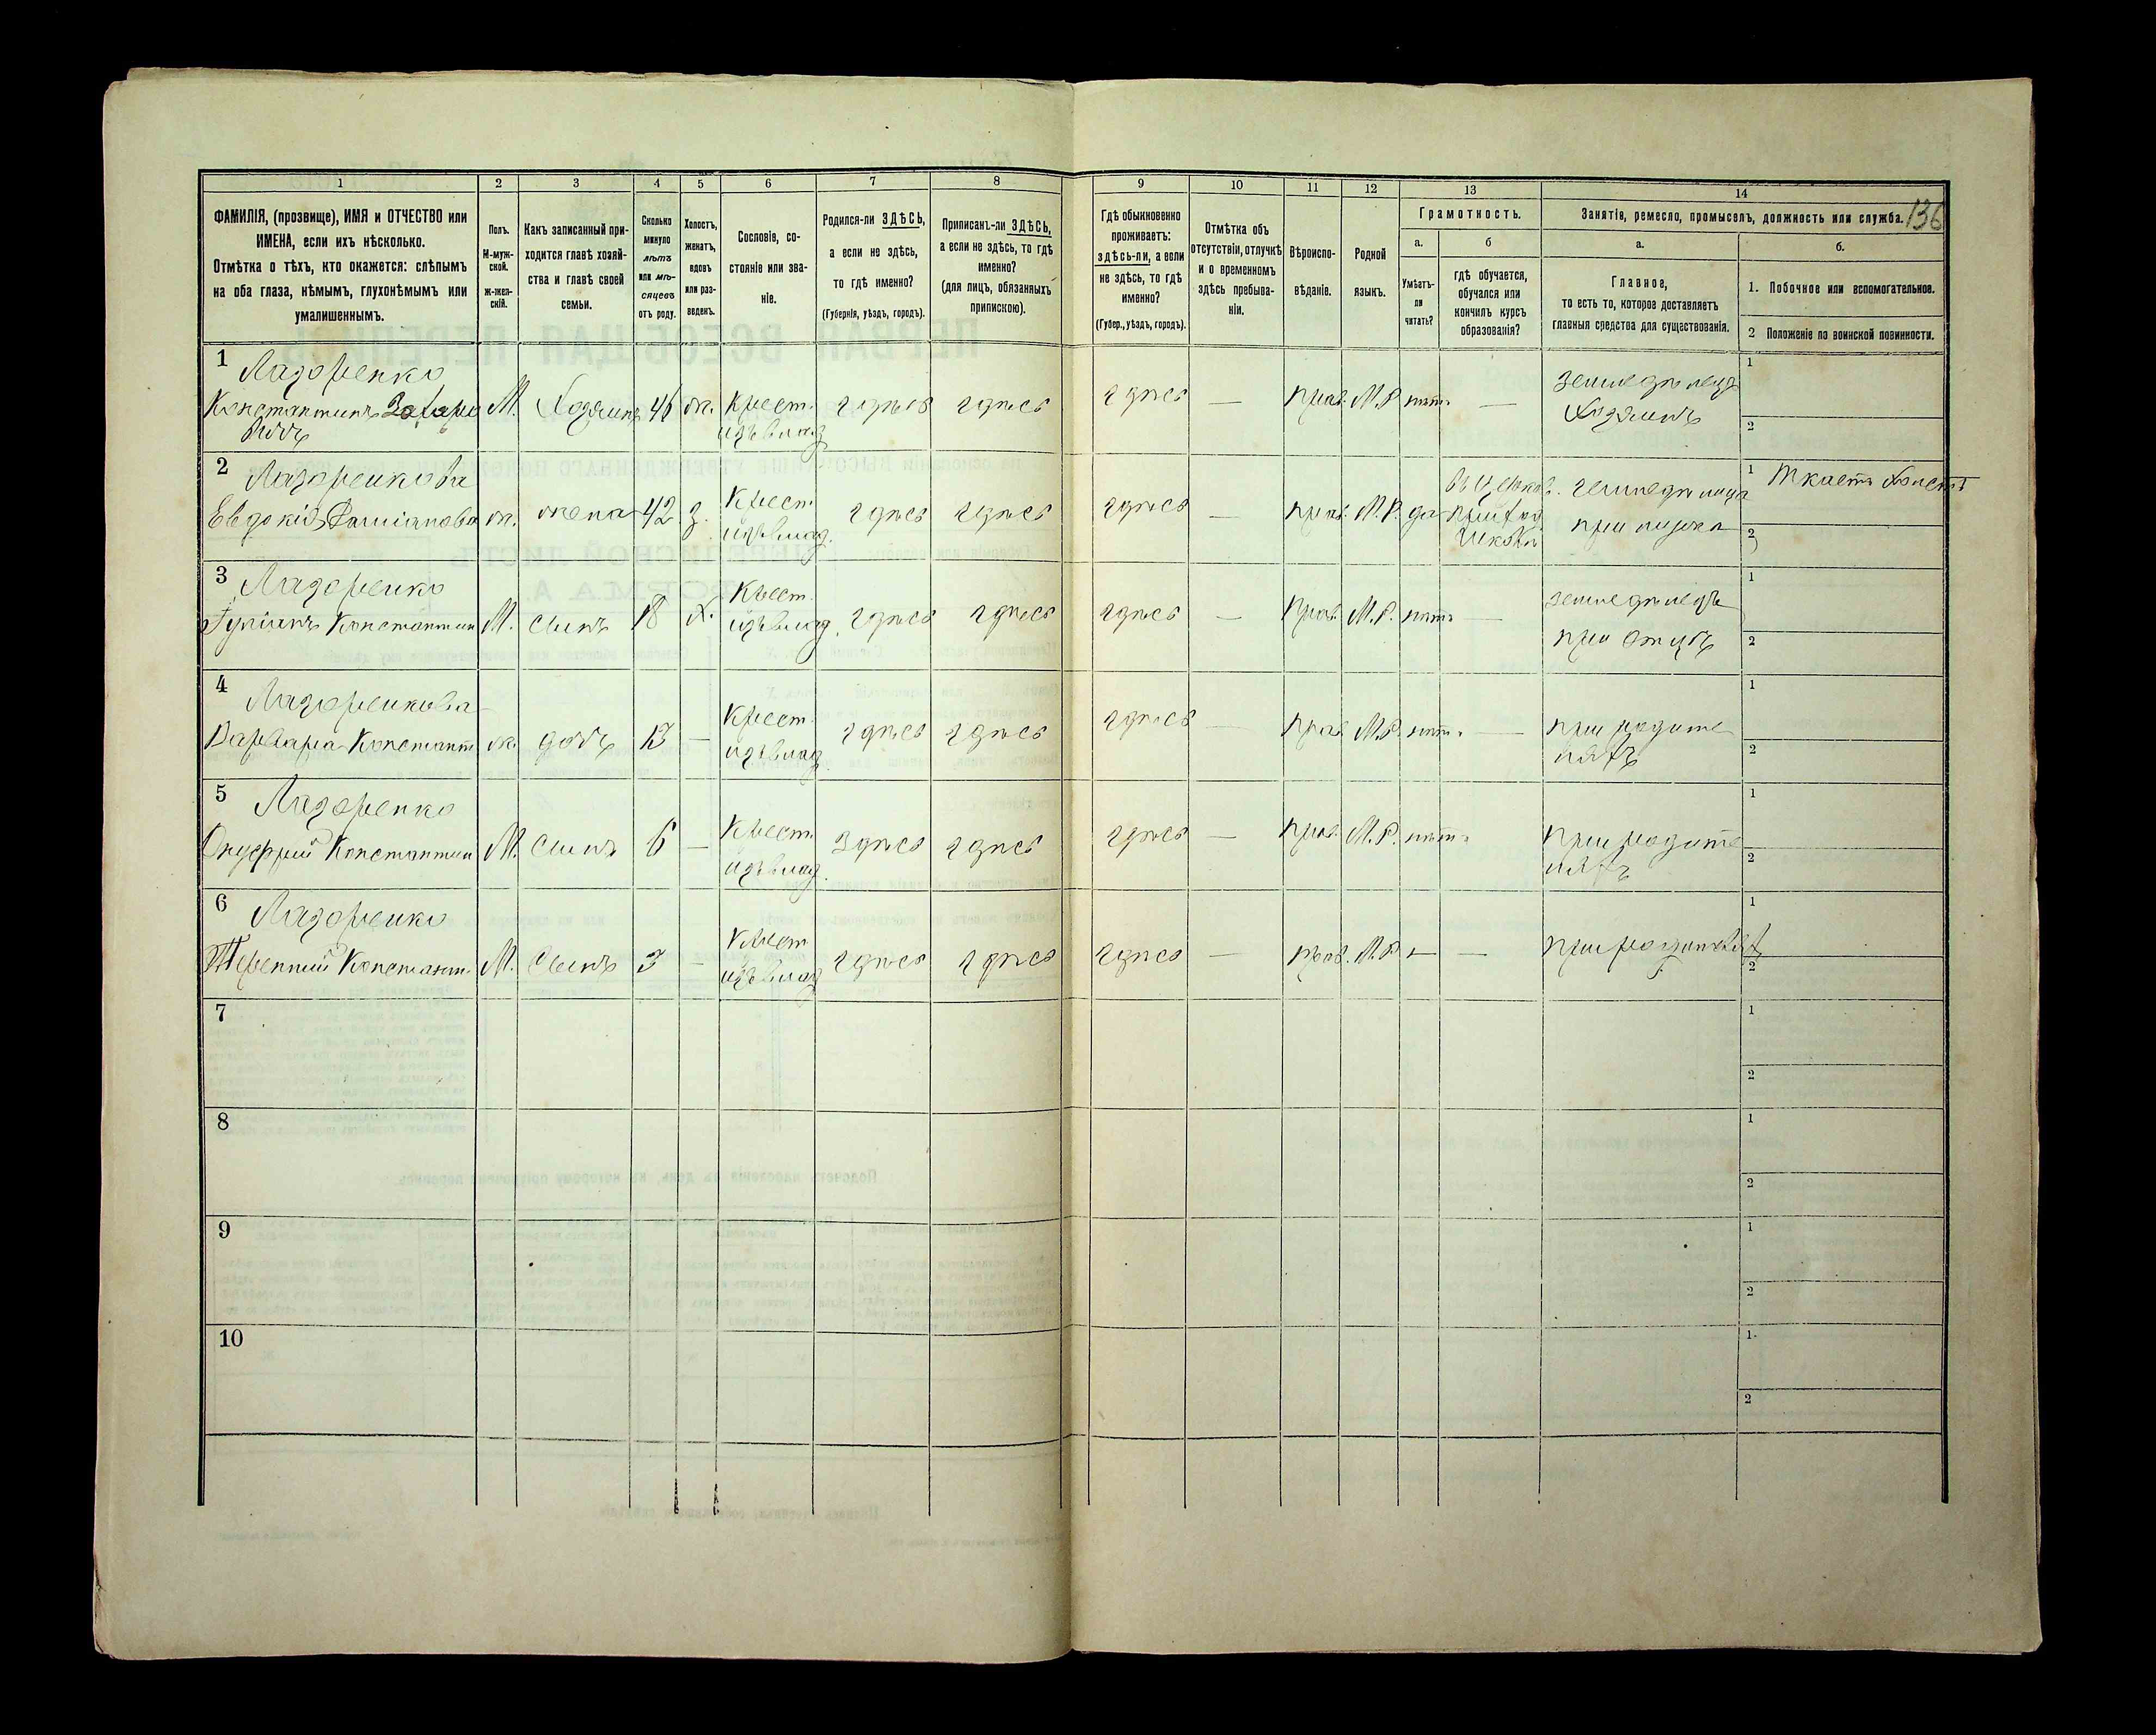 136
1 2 3 4 5 6 7 8 9 10 11 12 13 14
ФАМИЛІЯ, (прозвище), ИМЯ и ОТЧЕСТВО или
ИМЕНА, если ихъ нѣсколько.
Отмѣтка о тѣхъ, кто окажется: слѣпымъ
на оба глаза, нѣмымъ, глухонѣмымъ или
умалишеннымъ.
Полъ.
М-муж-
ской.
ж-жен-
скій.
Какъ записанный при-
ходится главѣ хозяй-
ства и главѣ своей
семьи.
Сколько
минуло
лѣтъ
или мѣ-
сяцевъ
отъ роду.
Холостъ,
женатъ,
вдовъ
или раз-
веденъ.
Сословіе, со-
стояніе или зва-
ніе.
Родился-ли ЗДѢСЬ,
а если не здѣсь,
то гдѣ именно?
(Губернія, уѣздъ, городъ).
Приписанъ-ли ЗДѢСЬ,
а если не здѣсь, то гдѣ
именно?
(для лицъ, обязанныхъ
припискою).
Гдѣ обыкновенно
проживаетъ:
здѣсь-ли, а если
не здѣсь, то гдѣ
именно?
(Губер., уѣздъ, городъ).
Отмѣтка объ
отсутствіи, отлучкѣ
и о временномъ
здѣсь пребыва-
ніи.
Вѣроиспо-
вѣданіе.
Родной
языкъ.
Грамотность.
а.
Умѣетъ-
ли
читать?
б
гдѣ обучается,
обучался или
кончилъ курсъ
образованія?
Занятіе, ремесло, промыселъ, должность или служба.
а.
Главное,
то есть то, которое доставляетъ
главныя средства для существованія.
б.
1. Побочное или вспомогательное.
2 Положеніе по воинской повинности.
1 Лазоренко
Константинъ Захаро
вичъ
М. Хозяинъ 46 ж. Крест.
изъ влад. здѣсь здѣсь здѣсь — прав. М.Р. нѣтъ — земледѣлецъ
Хозяинъ
1
2
2 Лазоренкова
Евдокія Даміанова ж. жена 42 з. Крест.
изъ влад. здѣсь здѣсь здѣсь прав. М.Р. да въ церков.
приход.
школѣ
земледѣлица
при мужѣ
1 Ткаетъ холстъ
2
3 Лазоренко
Гуріанъ Константин М. сынъ 18 х. Крест.
изъ влад. здѣсь здѣсь здѣсь — прав. М.Р. нѣтъ — земледѣлецъ
при отцѣ
1
2
4 Лазоренкова
Варвара Констант. ж. дочь 13 — Крест.
изъ влад. здѣсь здѣсь здѣсь — прав. М.Р. нѣтъ — при родите
ляхъ
1
2
5 Лазоренко
Онуфрій Константин М. сынъ 6 — Крест.
изъ влад. здѣсь здѣсь здѣсь — прав. М.Р. нѣтъ при родите
ляхъ
1
2
6 Лазоренко
Терентій Константин. М. Сынъ 3 — Крест
изъ влад здѣсь здѣсь здѣсь — прав. М.Р. — — при родителях
1
2
7
1
2
8
1
2
9
1
2
10
1
2